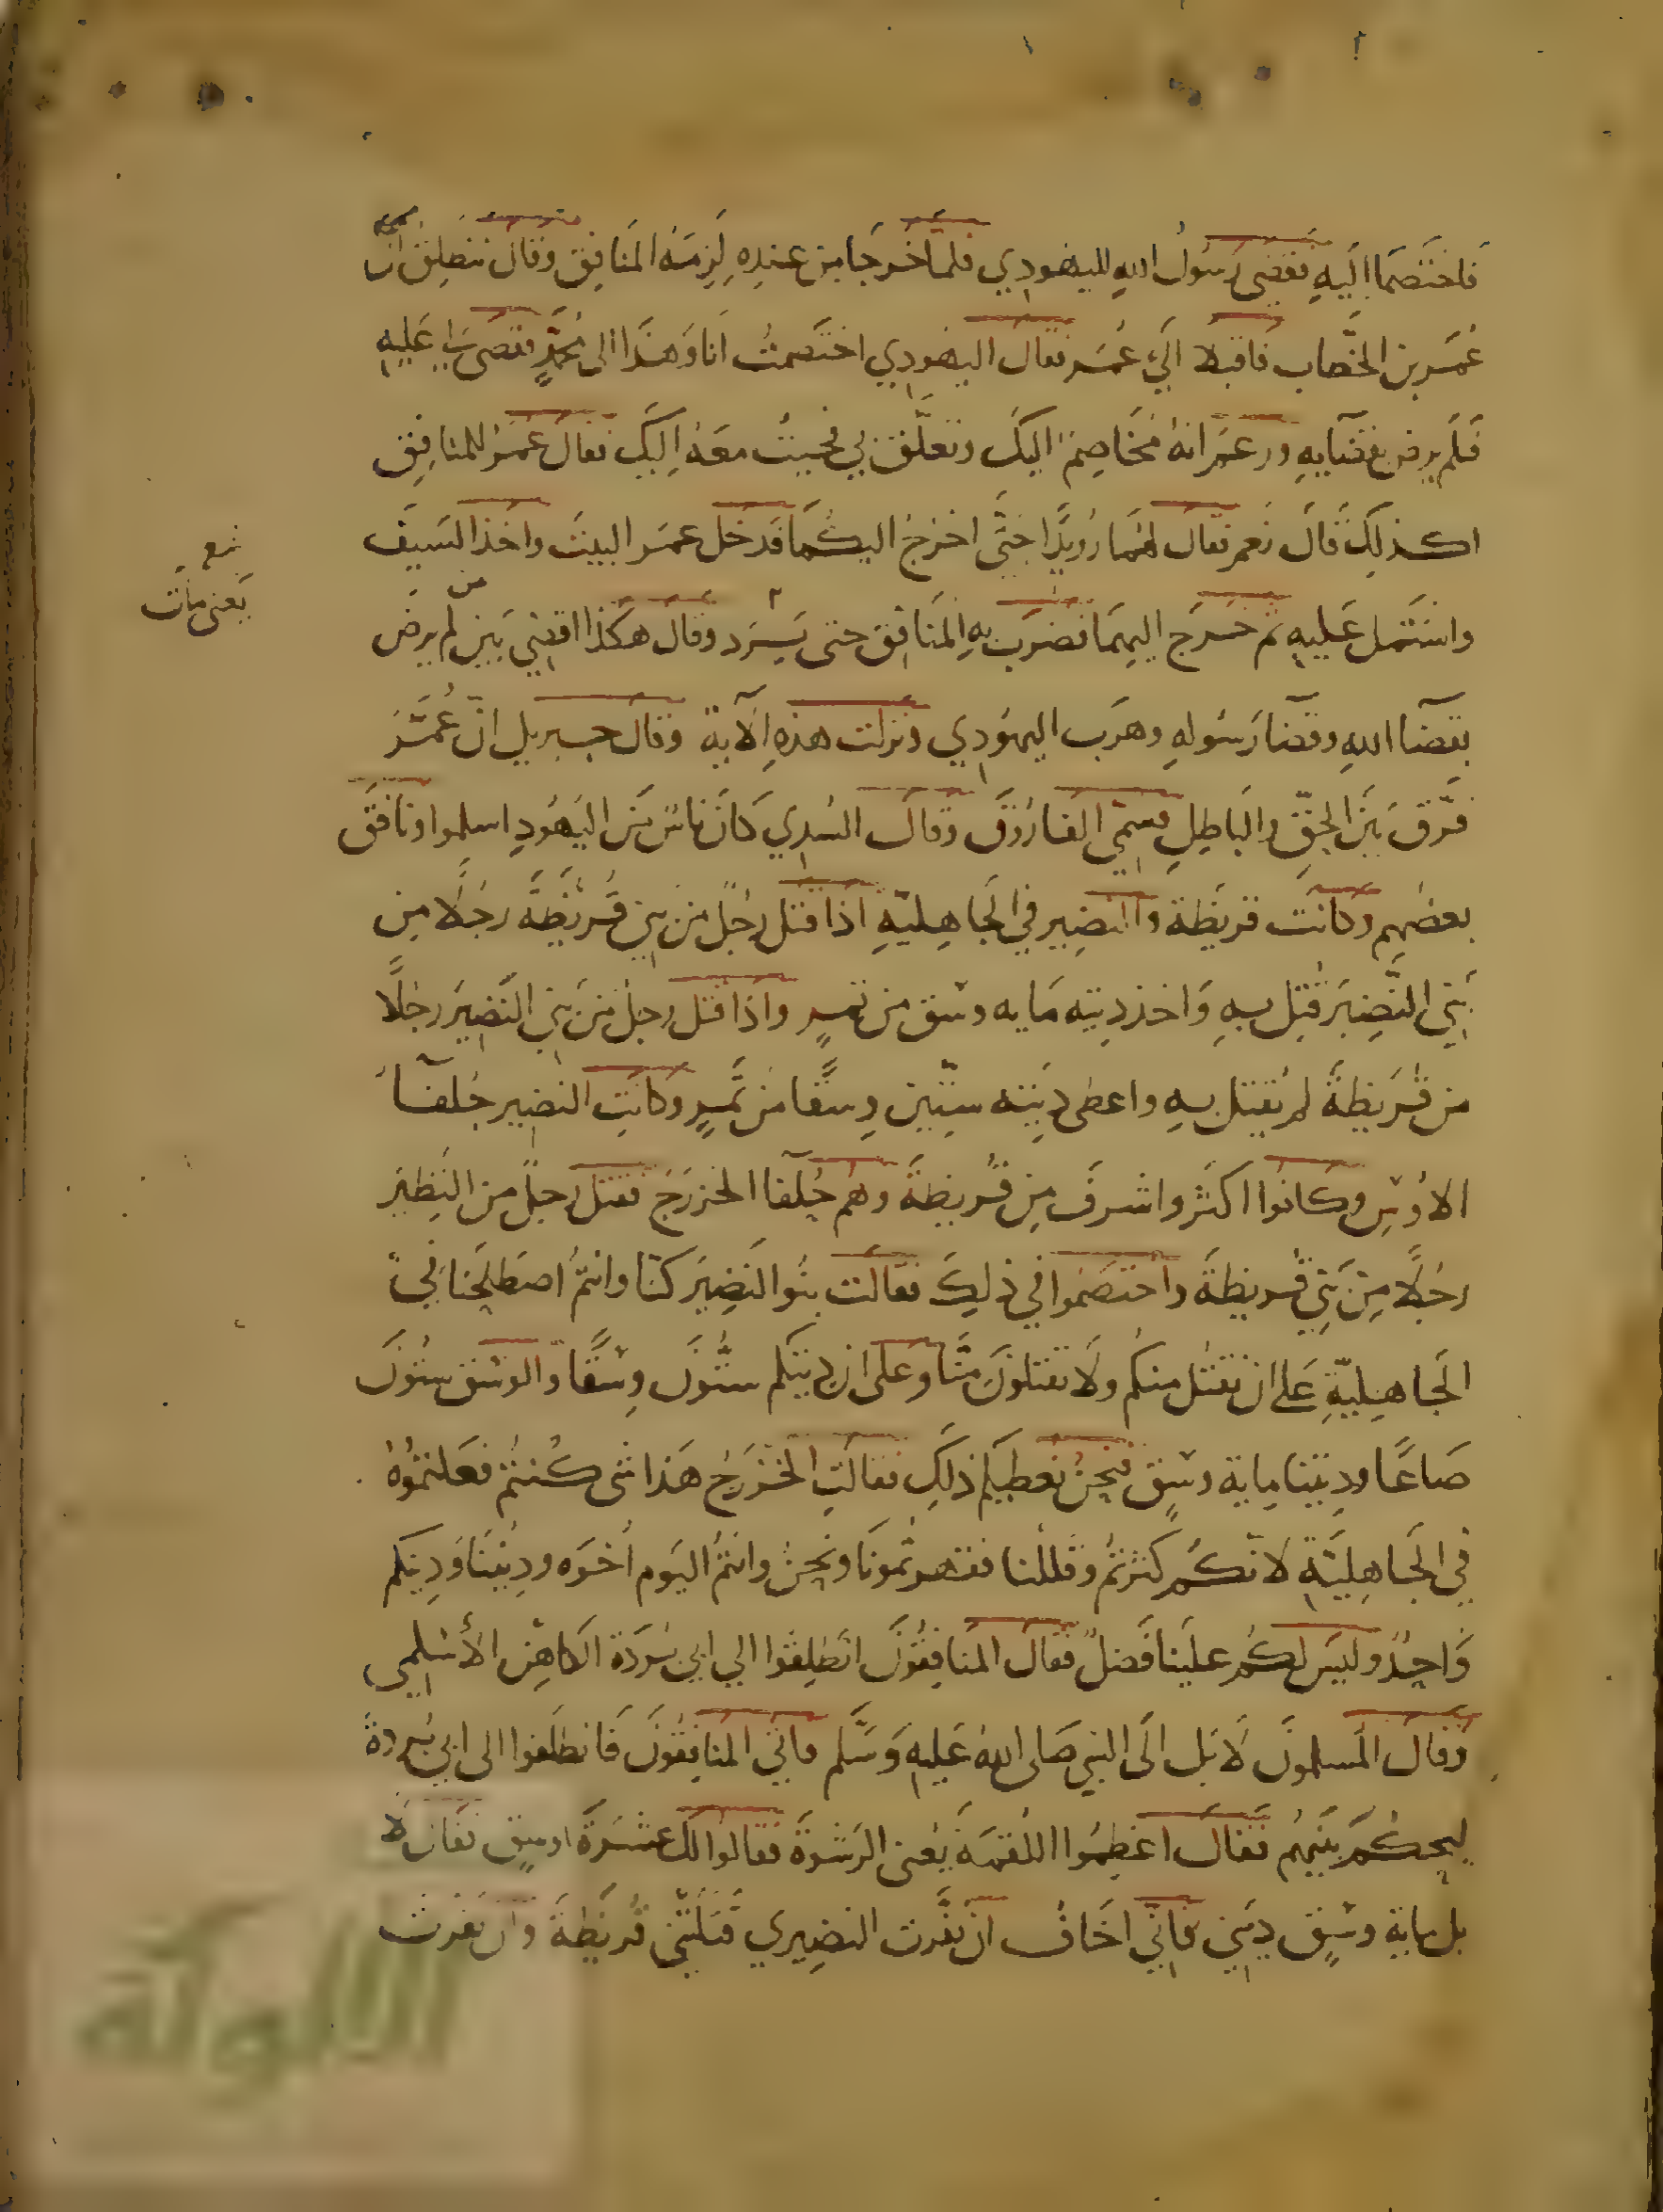 فاختصما اليه فقضى رسول الله لليهودي فلما خرجا من عنده لزمه المنافق وقال ننطلق الى
عمر بن الخطاب فاقبلا الى عمر فقال اليهودي اختصمت انا وهذا الى محمد فقضى لي عليه
فلم يرض بقضايه وزعم انه مخاصم اليك وتعلق بي فجيت معه اليك فقال عمر للمنافق
اكذلك قال نعم فقال لهما رويدا حتى اخرج اليكما فدخل عمر البيت واخذ السيف
واشتمل عليه ثم خرج اليهما فضرب به المنافق حتى برد وقال هكذا اقضي بين من لم يرض
بقضا الله وقضا رسوله وهرب اليهودي ونزلت هذه الآية وقال جبريل ان عمر
فرق بين الحق والباطل فسمي الفاروق وقال السدي كان ناس من اليهود اسلموا ونافق
بعضهم وكانت قريظة والنضير في الجاهلية اذا قتل رجل من بني قريظة رجلا من
بني النضير قتل به واخذ ديته مايه وسق من تمر واذا قتل رجل من بني النضير رجلا
من قريظة لم يقتل به واعطى ديته ستين وسقا من تمر وكانت النضير حلفآ
الاوس وكانوا اكثر واشرف من قريظة وهم حلفآ الخزرج فقتل رجل من النظير
رجلا من بني قريظة واختصموا في ذلك فقالت بنو النضير كنا وانتم اصطلحنا في
الجاهلية على ان نقتل منكم ولا تقتلون منا وعلى ان ديتكم ستون وسقا والوسق ستون
صاعا وديتنا ماية وسق فنحن نعطيكم ذلك فقالت الخزرج هذا شى كنتم فعلتموه
في الجاهلية لانكم كثرتم وقللنا فقهرتمونا ونحن وانتم اليوم اخوه وديننا ودينكم
واحد وليس لكم علينا فضل فقال المنافقون انطلقوا الي ابي بردة الكاهن الأسلمي
وقال المسلمون لا بل الى النبي صلى الله عليه وسلم فابى المنافقون فانطلقوا الى ابي بردة
ليحكم بينهم فقال اعظموا اللقمة يعنى الرشوة فقالوا لك عشرة اوسق فقال لا
بل ماية وسق ديتي فاني اخاف ان نفرت النضيري قتلتني قريظة وان نفرت
يعنى مات